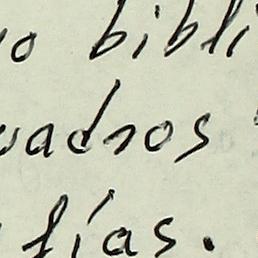 o bibli
uadros
fías.